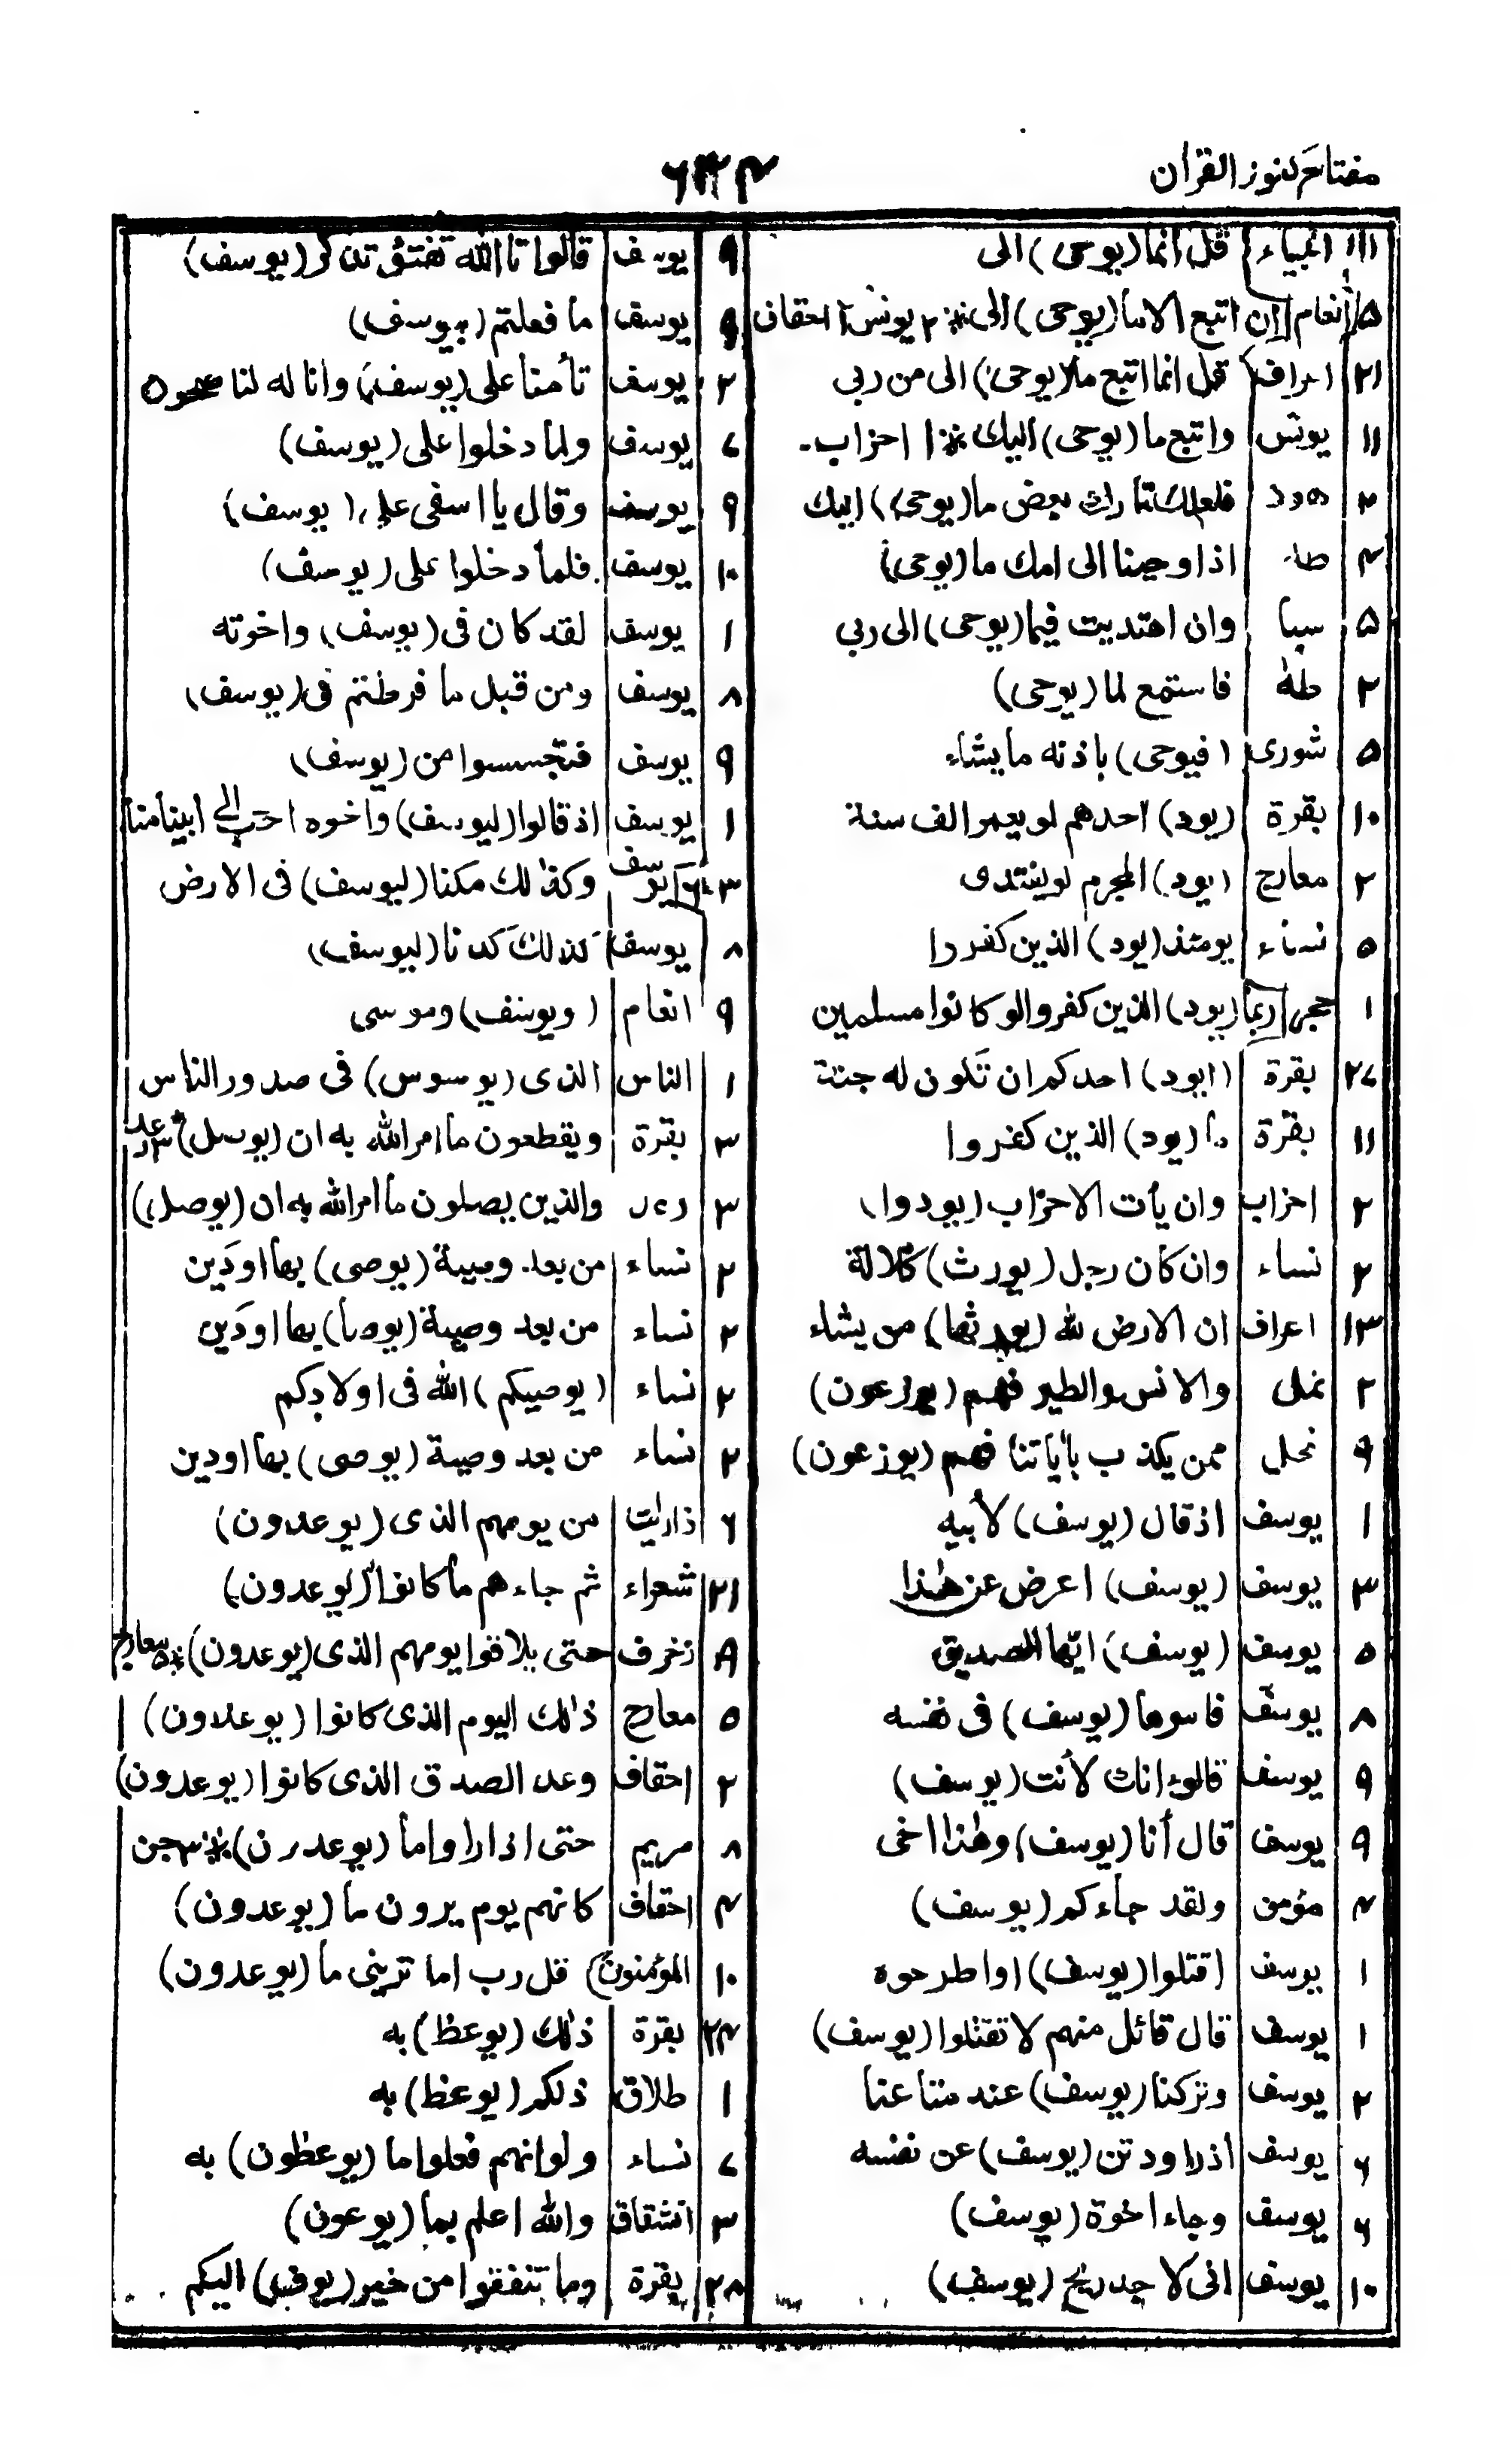 مفتاح كنوز القرآن
٦٣٤
١١١ انبياء قل انما (يوحى) الى
٥ انعام ان اتبع الا ما (يوحى) الى ٢ يونس ١ احقاف
٢١ اعراف قل انما اتبع ما (يوحى) الى من ربى
١١ يونس واتبع ما (يوحى) اليك ١ احزاب
٢ هود فلعلك تارك بعض ما (يوحى) اليك
٢ طه اذ اوحينا الى امك ما (يوحى)
٥ سبا وان اهتديت فيما (يوحى) الى ربى
٢ طه فاستمع لما (يوحى)
٥ شورى (فيوحى) باذنه ما يشاء
١٠ بقرة (يود) احدهم لو يعمر الف سنة
٢ معارج (يود) المجرم لو يفتدى
٥ نساء يومئذ (يود) الذين كفروا
١ حجر ربما (يود) الذين كفروا لو كانوا مسلمين
٢٧ بقرة (ايود) احدكم ان تكون له جنة
١١ بقرة ما (يود) الذين كفروا
٢ احزاب وان يأت الاحزاب (يودوا)
٢ نساء وان كان رجل (يورث) كلالة
١٣ اعراف ان الارض لله (يورثها) من يشاء
٢ نمل والانس والطير فهم (يوزعون)
٩ نحل ممن يكذب بأياتنا فهم (يوزعون)
١ يوسف اذ قال (يوسف) لأبيه
٣ يوسف (يوسف) اعرض عن هذا
٥ يوسف (يوسف) ايها الصديق
٨ يوسف فاسرها (يوسف) فى نفسه
٩ يوسف قالوء انك لأنت (يوسف)
٩ يوسف قال أنا (يوسف) وهذا اخى
٤ مؤمن ولقد جاءكم (يوسف)
١ يوسف اقتلوا (يوسف) اواطرحوه
١ يوسف قال قائل منهم لا تقتلوا (يوسف)
٢ يوسف وتركنا (يوسف) عند متاعنا
٦ يوسف اذ راودتن (يوسف) عن نفسه
٦ يوسف وجاء اخوة (يوسف)
١٠ يوسف انى لا جد ريح (يوسف)
٩ يوسف قالوا تا الله تفتئو تذكر (يوسف)
٩ يوسف ما فعلتم (بيوسف)
٢ يوسف تأمنا على (يوسف) وانا له لنا
٧ يوسف ولما دخلوا على (يوسف)
٩ يوسف وقال يا اسفى على (يوسف)
١٠ يوسف فلما دخلوا على (يوسف)
١ يوسف لقد كان فى (يوسف) واخوته
٨ يوسف ومن قبل ما فرطتم فى (يوسف)
٩ يوسف فتجسسوا من (يوسف)
١ يوسف اذ قالوا (ليوسف) واخوه احب الى ابينا منا
٣ ٦ يوسف وكذلك مكنا (ليوسف) فى الارض
٨ يوسف كذلك كدنا (ليوسف)
٩ انعام (ويوسف) وموسى
١ الناس الذى (يوسوس) فى صدور الناس
٣ بقرة ويقطعون ما امر الله به ان (يوصل)
٣ رعد والذين يصلون ما امر الله به ان (يوصل)
٢ نساء من بعد وصية (يوصى) بها اودين
٢ نساء من بعد وصية (يوصا) بها اودين
٢ نساء (يوصيكم) الله فى اولادكم
٢ نساء من بعد وصية (يوصى) بها اودين
٦ ذاريت من يومهم الذى (يوعدون)
٢١ شعراء ثم جاءهم ما كانوا (يوعدون)
٨ زخرف حتى يلاقوا يومهم الذى (يوعدون) معارج
٥ معارج ذلك اليوم الذى كانوا (يوعدون)
٢ احقاف وعد الصدق الذى كانوا (يوعدون)
٨ مريم حتى اذا راوا ما (يوعدون) ٣ جن
٤ احقاف كانهم يوم يرون ما (يوعدون)
١٠ المؤمنون قل رب اما ترينى ما (يوعدون)
٢٤ بقرة ذلك (يوعظ) به
١ طلاق ذلكم (يوعظ) به
٧ نساء ولو انهم فعلوا ما (يوعظون) به
٣ انشقاق والله اعلم بما (يوعون)
٢٨ بقرة وما تنفقوا من خير (يوف) اليكم